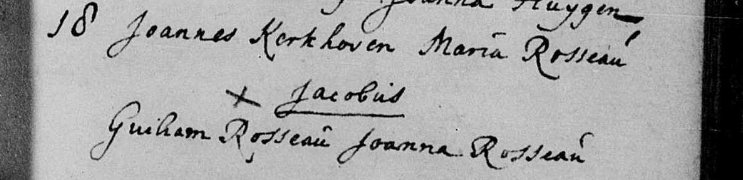 Joanna Huygen
18 Joannes Kerkhoven Maria Rosseaú
x Jacobús
Guiliam Rosseaú Joanna Rosseaú